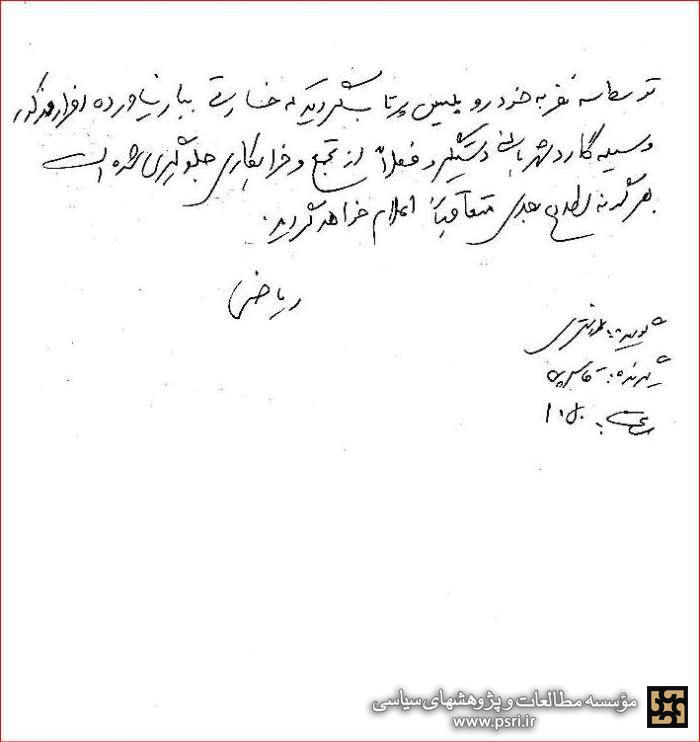 توسط سه نفر به خودرو پلیس پرتاب گردید که خسارتی ببار نیاورده افراد مذکور
وسیله گارد شهربانی دستگیر و فعلاً از تجمع و خرابکاری جلوگیری شده است
بهر گونه اطلاع بعدی متعاقباً اعلام خواهد گردید.
ریاضی
گوینده:
گیرنده:
ساعت:
مؤسسه مطالعات و پژوهشهای سیاسی
www.psri.ir